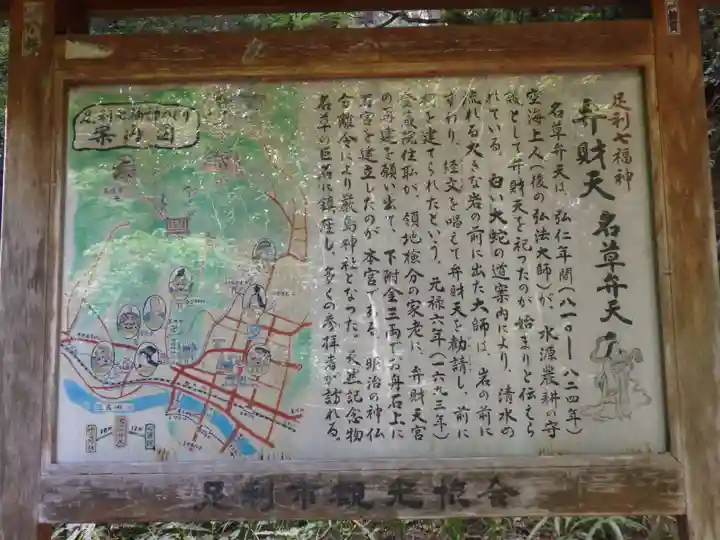 足利七福神
弁財天 名草弁天
名草弁天は、弘仁年間(八一〇ー八二四年)
空海上人(後の弘法大師)が、水源農耕の守
護として弁財天を祀ったのが始まりと伝えら
れている。白い大蛇の道案内により、清水の
流れる大きな岩の前に出た大師は、岩の前に
すわり、経文を唱えて弁財天を勧請し、前に
祠を建てられたという。元禄六年(一六九三年)
金蔵院住職が、領地検分の家老に、弁財天宮
の再建を願い出て、下附金三両でお舟石上に
石宮を建立したのが本宮である。明治の神仏
分離令により厳島神社となった。天然記念物
名草の巨石に鎮座し、多くの参拝者が訪れる。
足利七福神めぐり
案内図
足利市観光協会